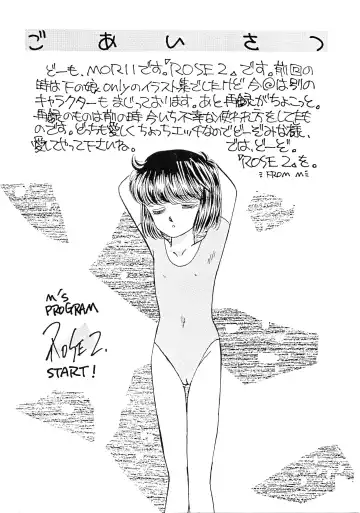 ごあいさつ
どーも、MORIIです。『ROSE 2』です。前回の
時は下の娘 onlyのイラスト集でしたけど 今回は別の
キャラクターも まじっております。あと再録がちょこっと。
再録のものは前の時 今いち不幸な使われ方をしてたも
のです。どっちも愛しくちょっちエッチなのでどーぞみな様、
愛してやって下さいね。 では、どーぞ。
『ROSE 2』を。
FROM M
M'S
PROGRAM
ROSE 2.
START!